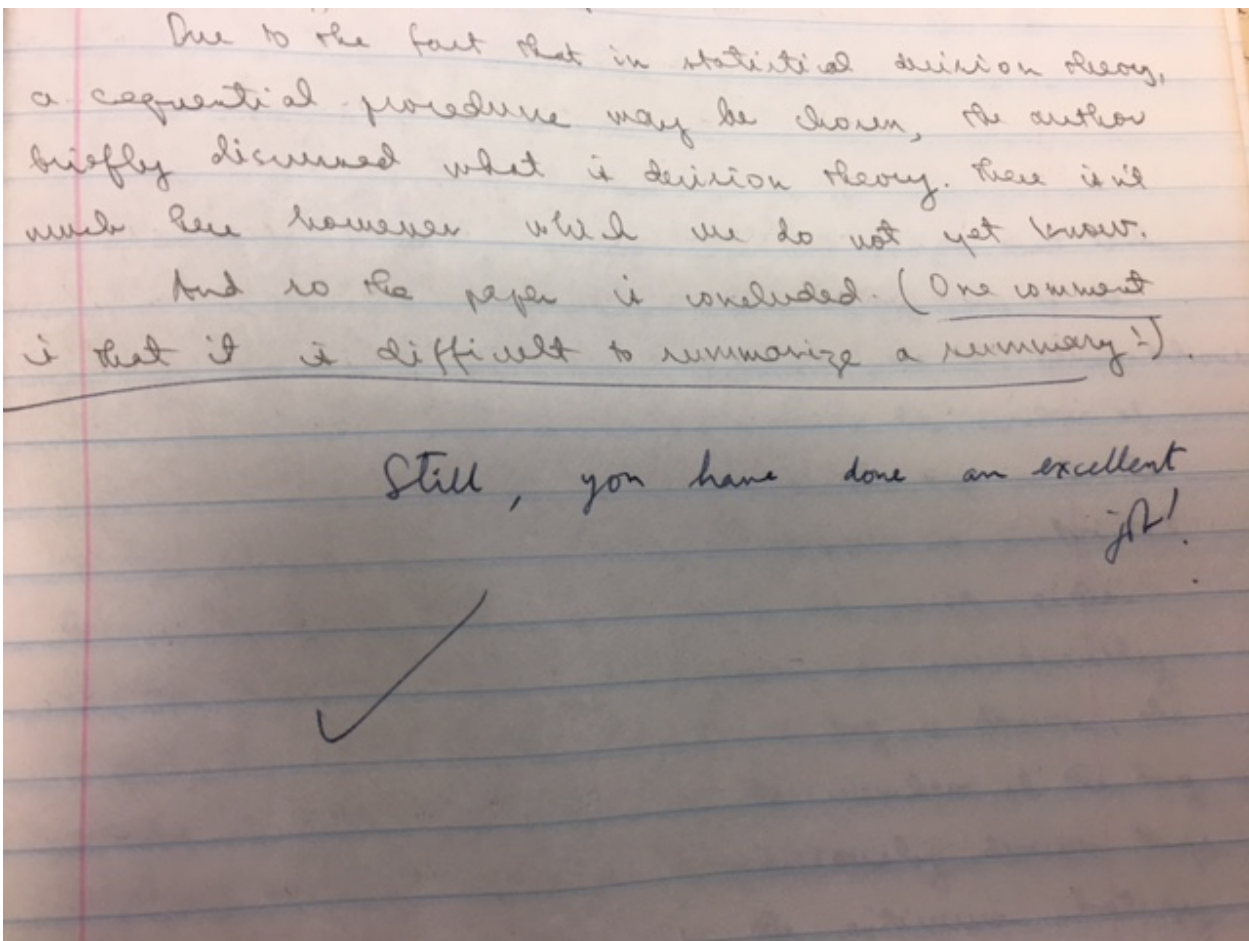 Due to the fact that in statistical decision theory,
a cequential procedure may be chosen, the author
briefly discussed what is decision theory. There isn't
much here however which we do not yet know.
And so the paper is concluded. (One comment
is that it is difficult to summarize a summary!).
Still, you have done an excellent
job!